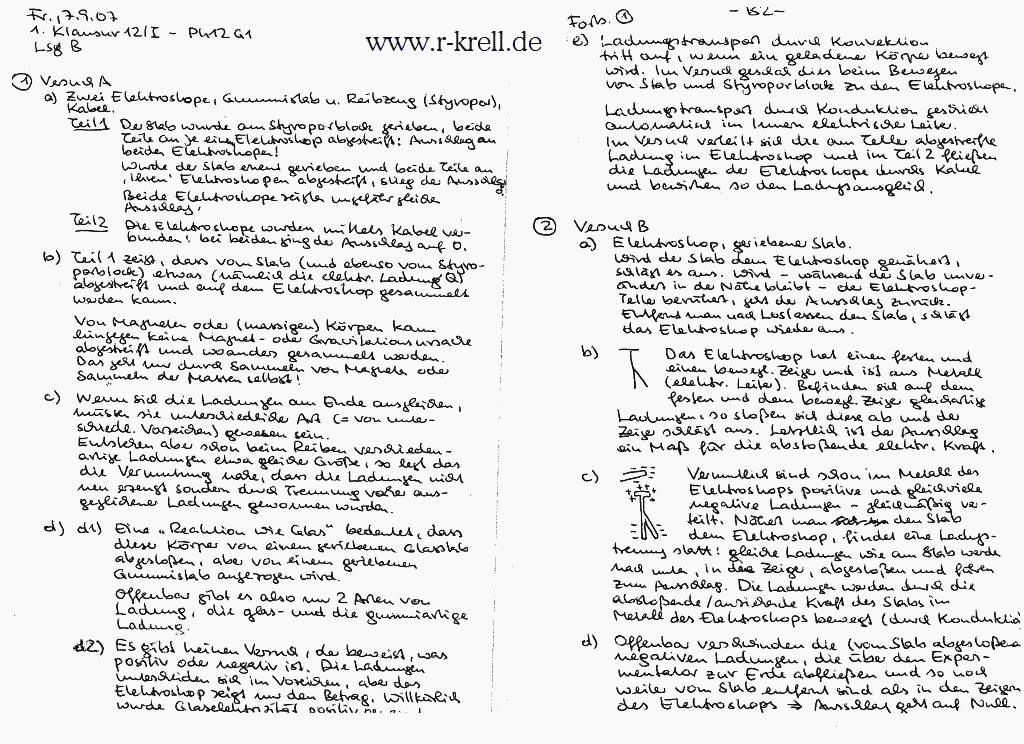 Fr., 7.9.07
1. Klausur 12/I - Ph12 G1
Lsg B
www.r-krell.de
① Versuch A
a) Zwei Elektroskope, Gummistab u. Reibzeug (Styropor),
Kabel.
Teil 1 Der Stab wurde am Styroporblock gerieben, beide
Teile an je einem Elektroskop abgestreift: Ausschlag an
beiden Elektroskopen!
Wurde der Stab erneut gerieben und beide Teile an
"ihren" Elektroskopen abgestreift, stieg der Ausschlag
Beide Elektroskope zeigten ungefähr gleichen
Ausschlag.
Teil 2 Die Elektroskope wurden mittels Kabel ver-
bunden: bei beiden ging der Ausschlag auf 0.
b) Teil 1 zeigt, dass vom Stab (und ebenso vom Styro-
porblock) etwas (nämlich die elektr. Ladung Q)
abgestreift und auf dem Elektroskop gesammelt
werden kann.
Von Magneten oder (massigen) Körpern kann
hingegen keine Magnet- oder Gravitationsursache
abgestreift und woanders gesammelt werden.
Das geht nur durch Sammeln von Magneten oder
Sammeln der Massen selbst!
c) Wenn sich die Ladungen am Ende ausgleichen,
müssen sie unterschiedliche Art (= von unter-
schiedl. Vorzeichen) gewesen sein.
Entstehen aber schon beim Reiben verschieden-
artige Ladungen etwa gleicher Größe, so liegt das
die Vermutung nahe, dass die Ladungen nicht
neu erzeugt sondern durch Trennung vorher aus-
geglichener Ladungen gewonnen wurden.
d) d1) Eine "Reaktion wie Glas" bedeutet, dass
dieser Körper von einem geriebenen Glasstab
abgestoßen, aber von einem geriebenen
Gummistab angezogen wird.
Offenbar gibt es also nur 2 Arten von
Ladung, die glas- und die gummiartige
Ladung.
d2) Es gibt keinen Versuch, der beweist, was
positiv oder negativ ist. Die Ladungen
unterscheiden sich im Vorzeichen, aber das
Elektroskop zeigt nur den Betrag. Willkürlich
wurde Glaselektrizität positiv genannt
- B2 -
Forts. ①
e) Ladungstransport durch Konvektion
tritt auf, wenn ein geladener Körper bewegt
wird. Im Versuch geschah dies beim Bewegen
von Stab und Styroporblock zu den Elektroskopen.
Ladungstransport durch Konduktion geschieht
automatisch im Innern elektrischer Leiter.
Im Versuch verteilt sich die am Teller abgestreifte
Ladung im Elektroskop und im Teil 2 fließen
die Ladungen der Elektroskope durchs Kabel
und bewirken so den Ladungsausgleich.
② Versuch B
a) Elektroskop, geriebener Stab.
Wird der Stab dem Elektroskop genähert,
schlägt es aus. Wird - während der Stab unver-
ändert in der Nähe bleibt - der Elektroskop-
Teller berührt, geht der Ausschlag zurück.
Entfernt man nach Loslassen den Stab, schlägt
das Elektroskop wieder aus.
b) Das Elektroskop hat einen festen und
einen bewegl. Zeiger und ist aus Metall
(elektr. Leiter). Befinden sich auf dem
festen und dem bewegl. Zeiger gleichartige
Ladungen, so stoßen sich diese ab und der
Zeiger schlägt aus. Letztlich ist der Ausschlag
ein Maß für die abstoßende elektr. Kraft.
c) Vermutlich sind schon im Metall des
Elektroskops positive und gleichviele
negative Ladungen - gleichmäßig ver-
teilt. Nähert man den Stab
dem Elektroskop, findet eine Ladungs-
trennung statt: gleiche Ladungen wie am Stab werden
nach unten, in den Zeiger, abgestoßen und führen
zum Ausschlag. Die Ladungen werden durch die
abstoßende/anziehende Kraft des Stabs im
Metall des Elektroskops bewegt (durch Konduktion
d) Offenbar verschwinden die (vom Stab abgestoßenen
negativen Ladungen, die über den Exper-
mentator zur Erde abfließen und so noch
weiter vom Stab entfernt sind als in den Zeigern
des Elektroskops → Ausschlag geht auf Null.